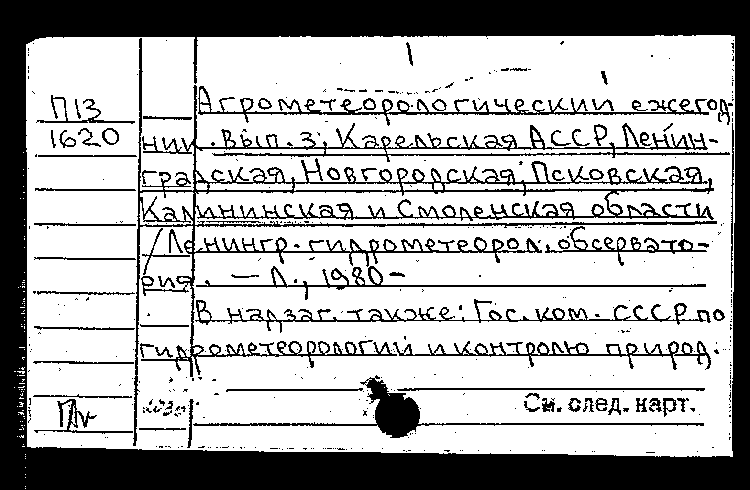 П13
1620
Агрометеорологический ежегод-
ник. Вып. 3, Карельская АССР, Ленин-
градская, Новгородская, Псковская,
Калининская и Смоленская области
/Ленингр. гидрометеорол. обсервато-
рия. — Л., 1980-
В надзаг. также: Гос. ком. СССР по
гидрометеорологии и контролю природ.
См. след. карт.